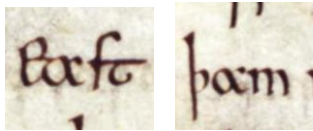 Eaſt þam